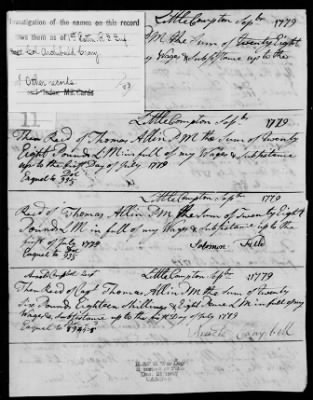 Investigation of the names on this record
own them as of
Col Archibald Crary
Other records
and Index M R Cards
11
Little Compton Sepbr 1779
P M the Sum of twenty Eight
my Wages & Subsistance up to the
Little Compton Sepbr 1779
Then Recd of Thomas Allin P M the Sum of twenty
Eight Pounds L M in full of my Wages & Subsistance
up to the first Day of July 1779
Equel to Dol 93⅓
Little Compton Sepbr 1779
Recd of Thomas Allin P M the Sum of twenty Eight
Pounds L M in full of my Wages & Subsistance up to the
first of July 1779
Equel to Dol Solomon
Little Compton Sepbr 1779
Then Recd of Capt Thomas Allin P M the Sum of twenty
Six Pounds Eighteen Shillings & Eight Pence L M in full of my
Wages & Subsistance up to the first Day of July 1779
Equel to Campbell